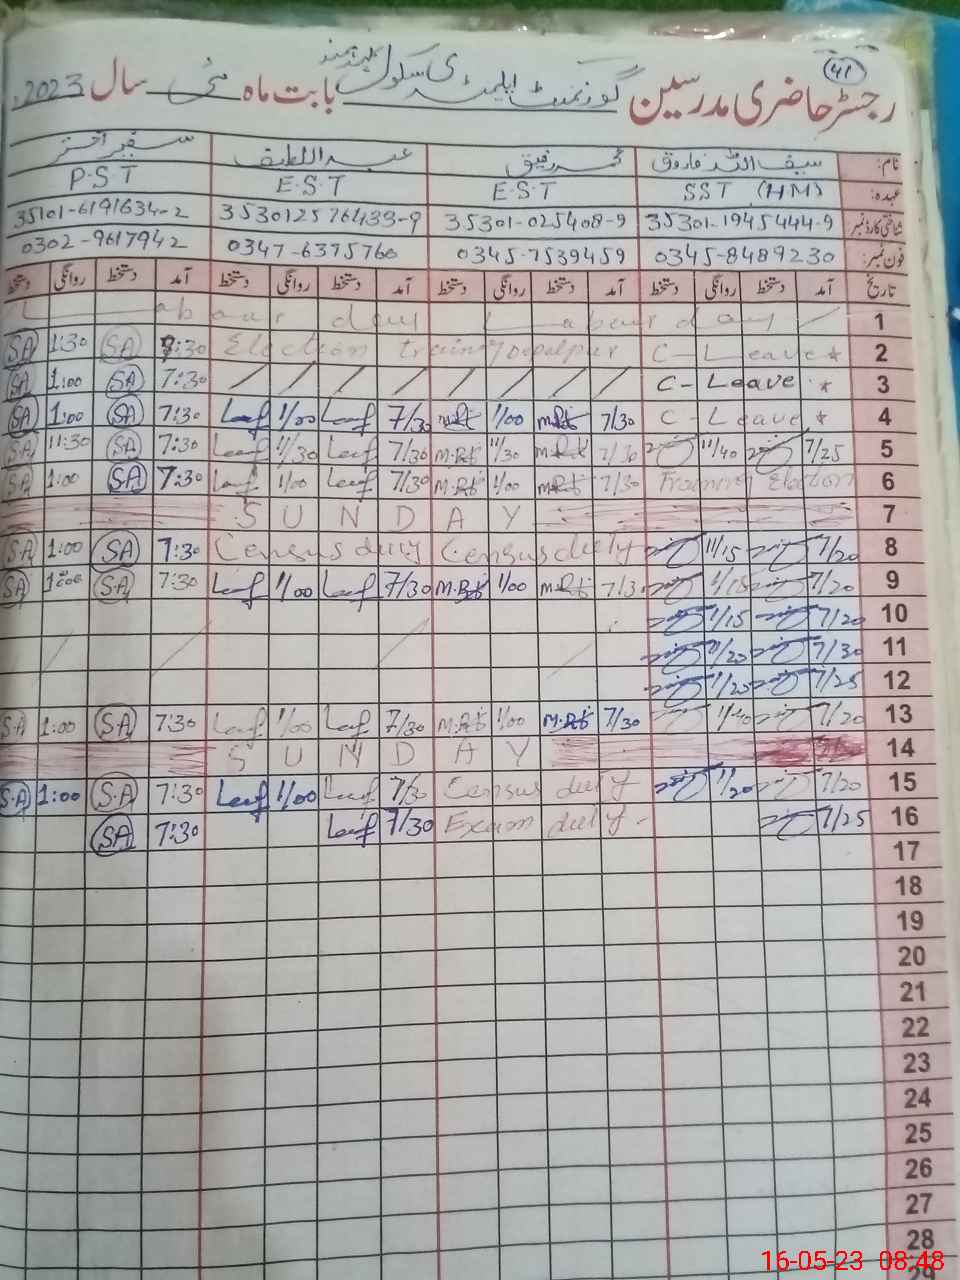 41
رجسٹر حاضری مدرسین گورنمنٹ ایلیمنٹری سکول بابت ماہ مئی سال 2023
نام: سیف اللہ فاروق محمد رفیق عبداللطیف سفیر اختر
عہدہ: SST (HM) E.S.T E.S.T P.S.T
شناختی کارڈ نمبر 35301-1945444-9 35301-025408-9 353012576433-9 35101-6191634-2
فون نمبر: 0345-8489230 0345-7539459 0347-6375760 0302-9617942
تاریخ آمد دستخط روانگی دستخط آمد دستخط روانگی دستخط آمد دستخط روانگی دستخط آمد دستخط روانگی دستخط
Labour day Labour day 1
SA 1:30 SA 7:30 Election training depalpur C-Leave 2
SA 1:00 SA 7:30 / / / / / / / / C-Leave 3
SA 1:00 SA 7:30 1/00 7/30 1/00 7/30 C-Leave 4
SA 11:30 SA 7:30 11/30 7/30 11/30 7/30 11/40 7/25 5
SA 1:00 SA 7:30 1/00 7/30 1/00 7/30 Training Election 6
SUNDAY 7
SA 1:00 SA 7:30 Census duty Census duty 11/15 7/20 8
SA 1:00 SA 7:30 1/00 7/30 1/00 7/3 1/15 7/20 9
1/15 7/20 10
1/20 7/30 11
1/20 7/25 12
SA 1:00 SA 7:30 1/00 7/30 1/00 7/30 1/40 7/20 13
SUNDAY 14
S.A 1:00 S.A 7:30 1/00 7/30 Census duty 1/20 7/20 15
SA 7:30 7/30 Exam duty 7/25 16
17
18
19
20
21
22
23
24
25
26
27
28
29
16-05-23 08:48